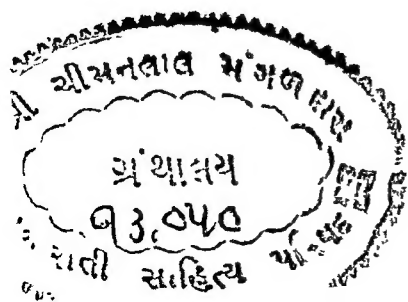 શ્રી ચીમનલાલ મંગળદાસ
ગ્રંથાલય
૧૩,૦૫૦
ગુજરાતી સાહિત્ય પરિષદ